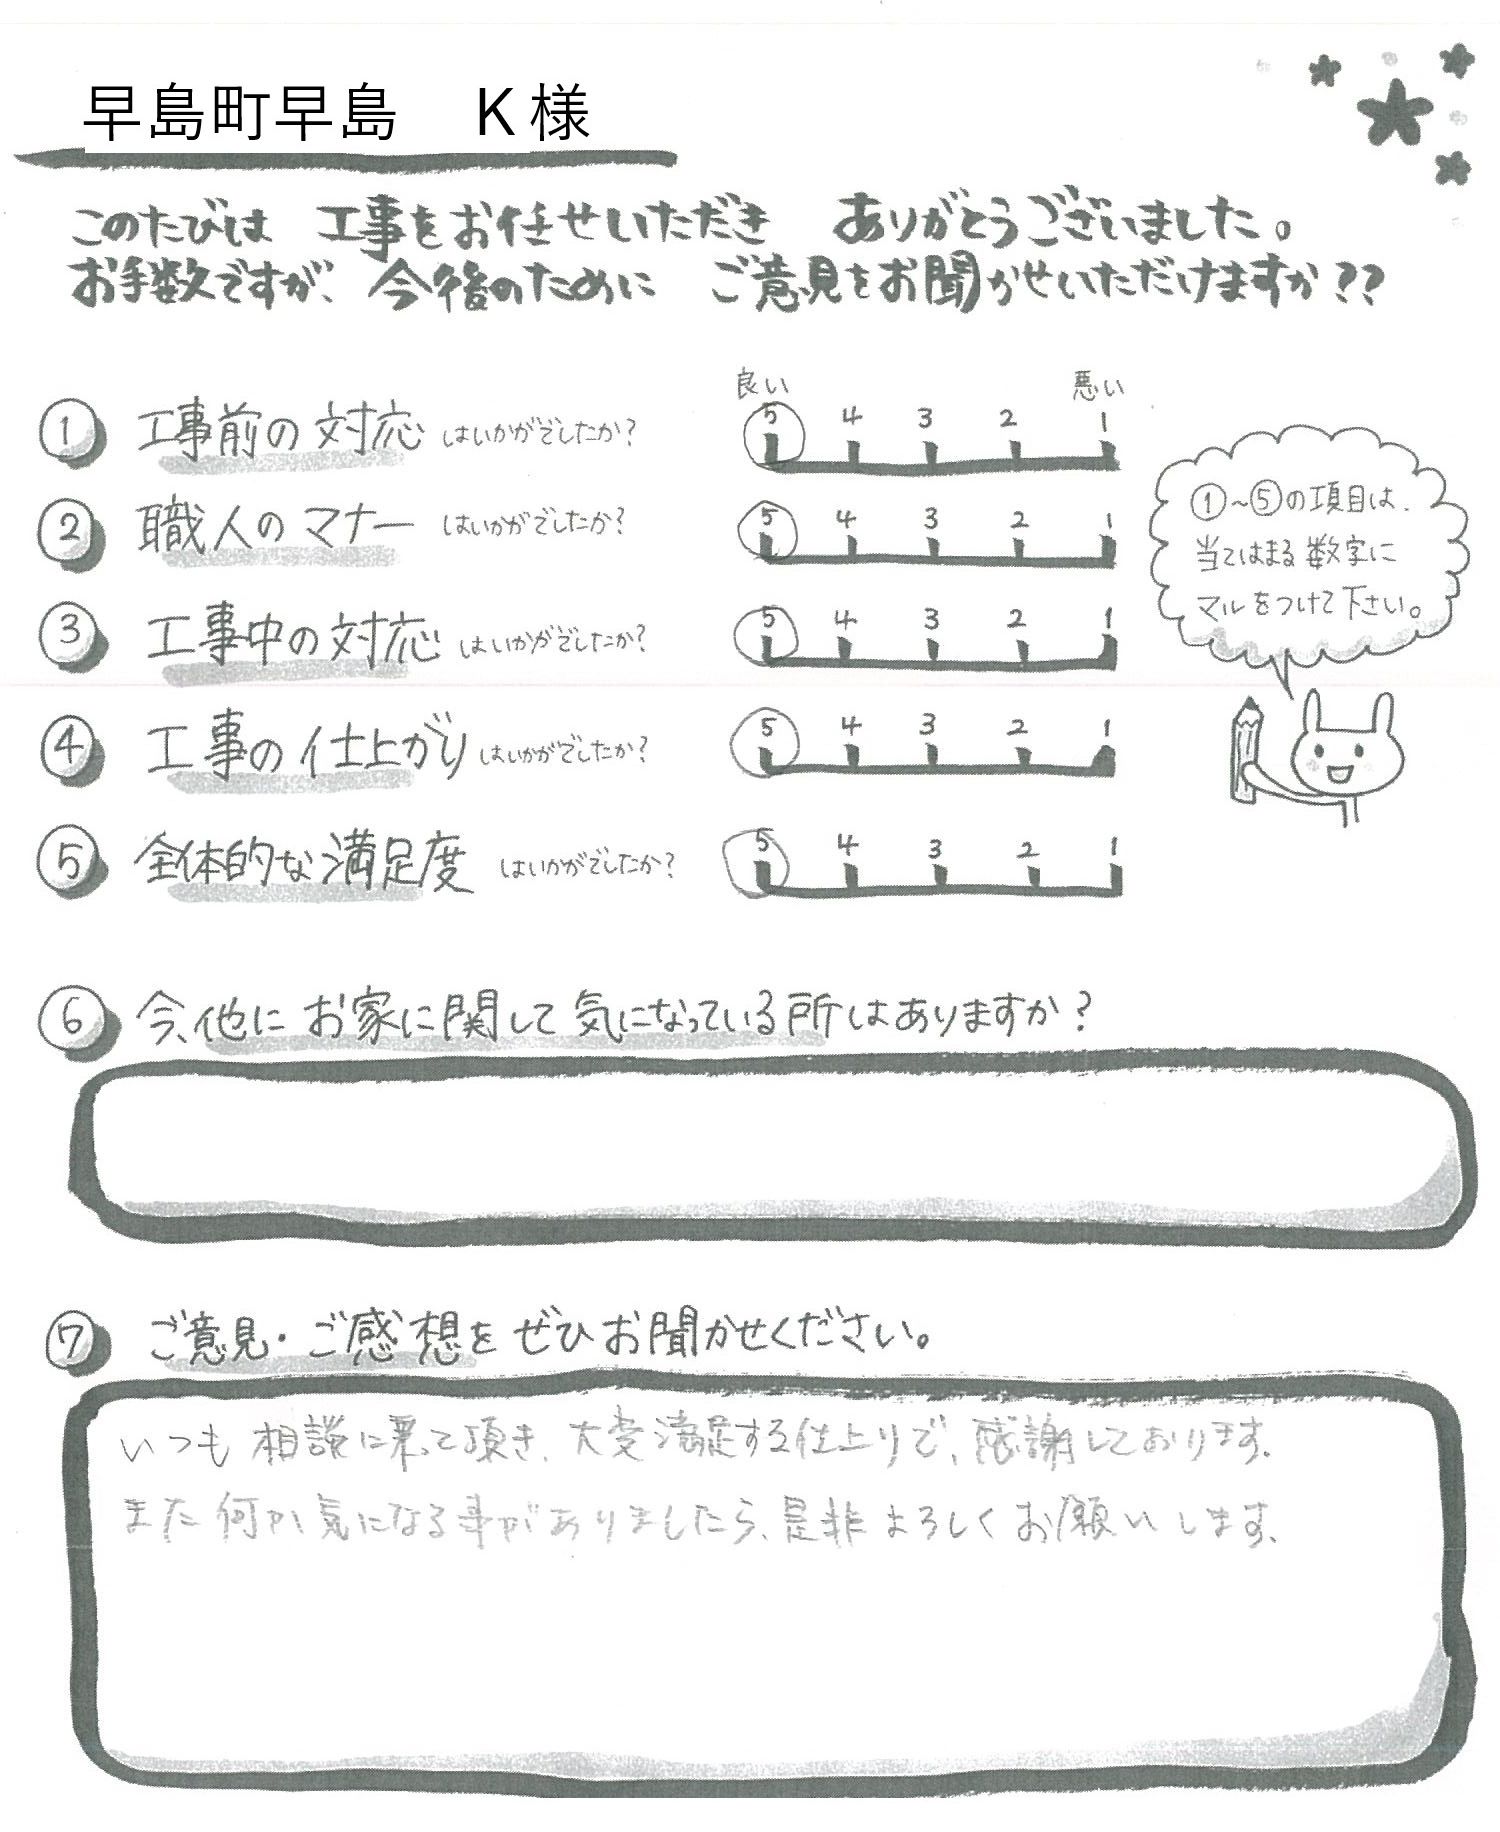 早島町早島　K様
このたびは 工事をお任せいただき ありがとうございました。
お手数ですが、今後のために ご意見をお聞かせいただけますか??
良い 悪い
① 工事前の対応 はいかがでしたか? 5 4 3 2 1
② 職人のマナー はいかがでしたか? 5 4 3 2 1
③ 工事中の対応 はいかがでしたか? 5 4 3 2 1
④ 工事の仕上がり はいかがでしたか? 5 4 3 2 1
⑤ 全体的な満足度 はいかがでしたか? 5 4 3 2 1
①~⑤の項目は、
当てはまる数字に
マルをつけて下さい。
⑥ 今、他にお家に関して気になっている所はありますか?
⑦ ご意見・ご感想をぜひお聞かせください。
いつも相談に乗って頂き、大変満足する仕上りで、感謝しております。
また何か気になる事がありましたら、是非よろしくお願いします。